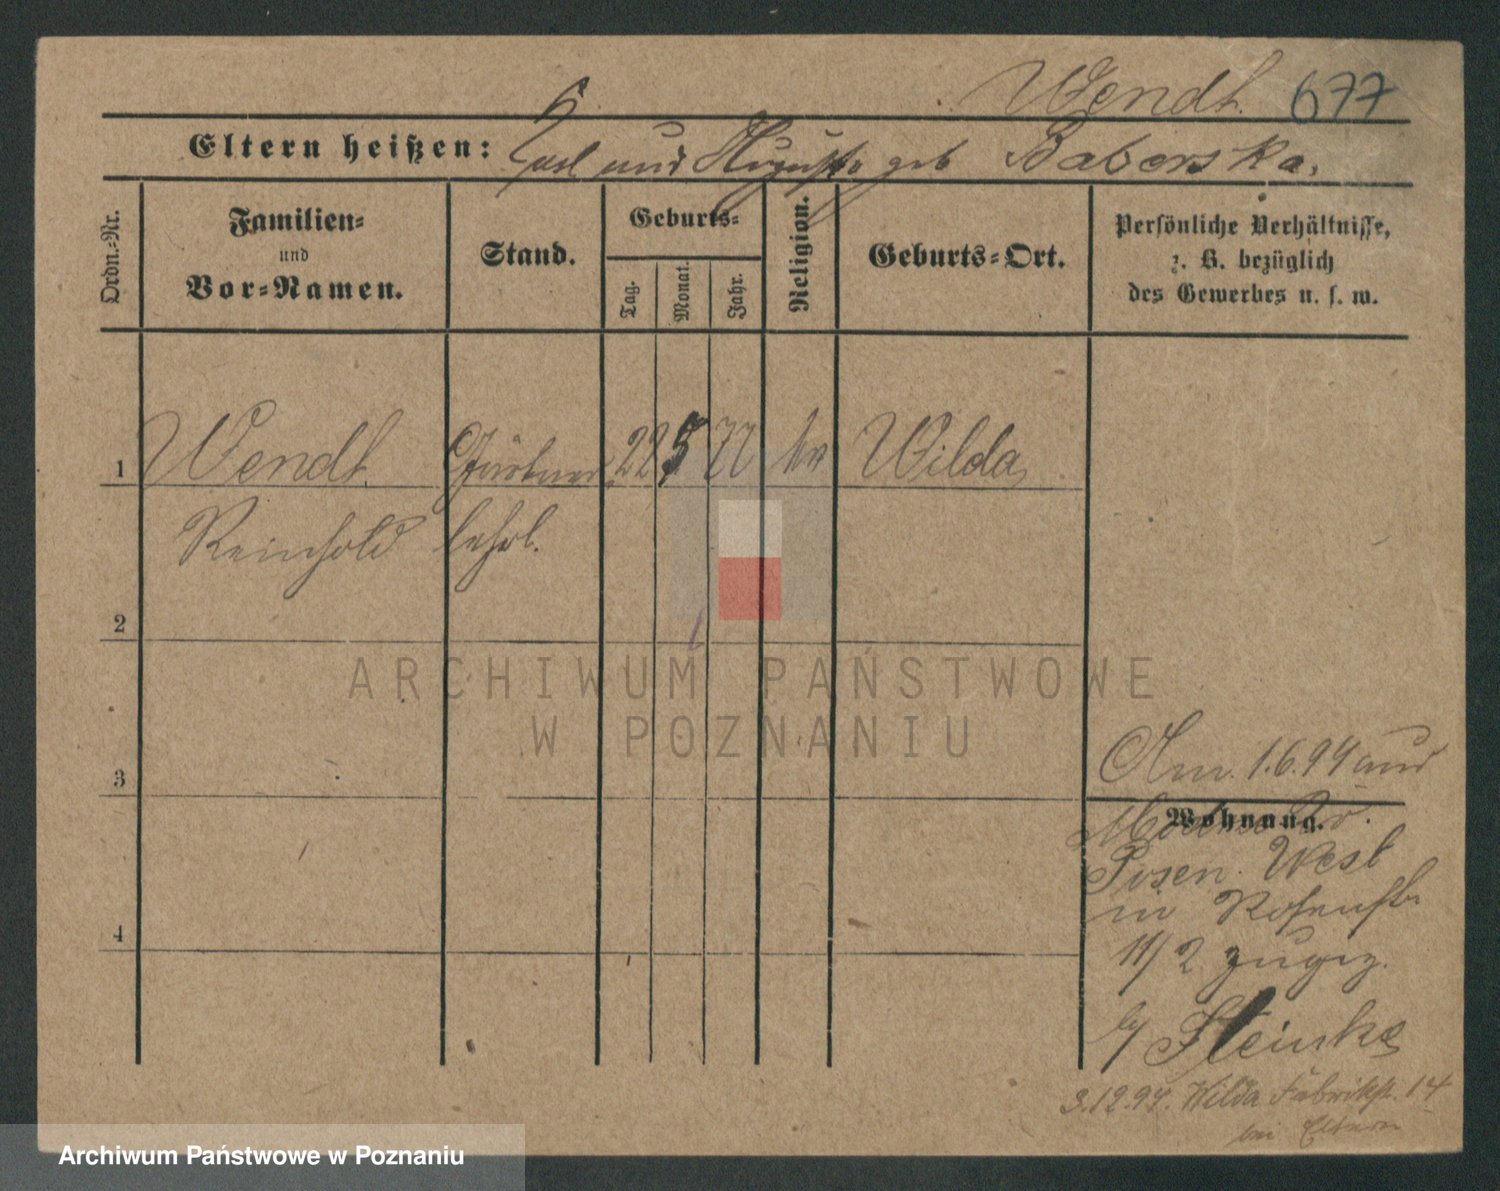 Wendt. 677
Eltern heißen: Carl und Auguste geb Baborska.
Ordn.-Nr.
Familien-
und
Vor-Namen.
Stand.
Geburts-
Tag.
Monat.
Jahr.
Religion.
Geburts-Ort.
Persönliche Verhältnisse,
z. B. bezüglich
des Gewerbes u. s. w.
1 Wendt. Gärtner 22 5 77 Wilda
Reinhold lehrl.
2
3
4
Am. 1.6.94 aus
Wohnung.
Posen. West
in Rosenstr
11/2 zugez.
b/ Steinke
3.12.94. Wilda Fabrikstr. 14
bei Eltern
ARCHIWUM PAŃSTWOWE
W POZNANIU
Archiwum Państwowe w Poznaniu